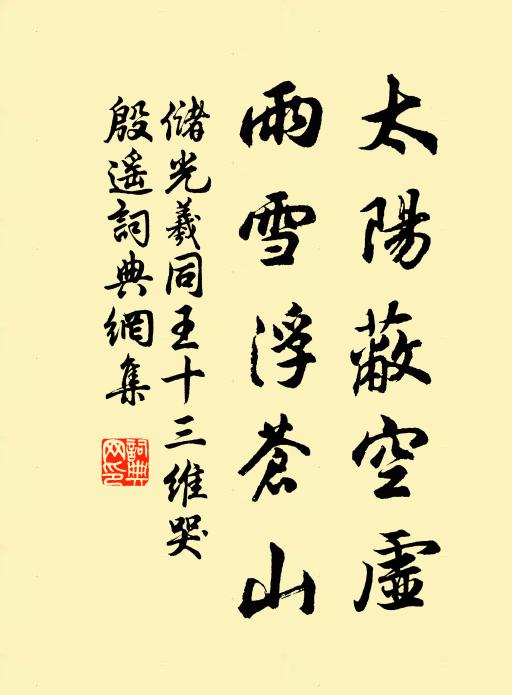 太陽蔽空虛
雨雪浮蒼山
儲光羲同王十三維哭
殷遙詞典網集
詞典網印